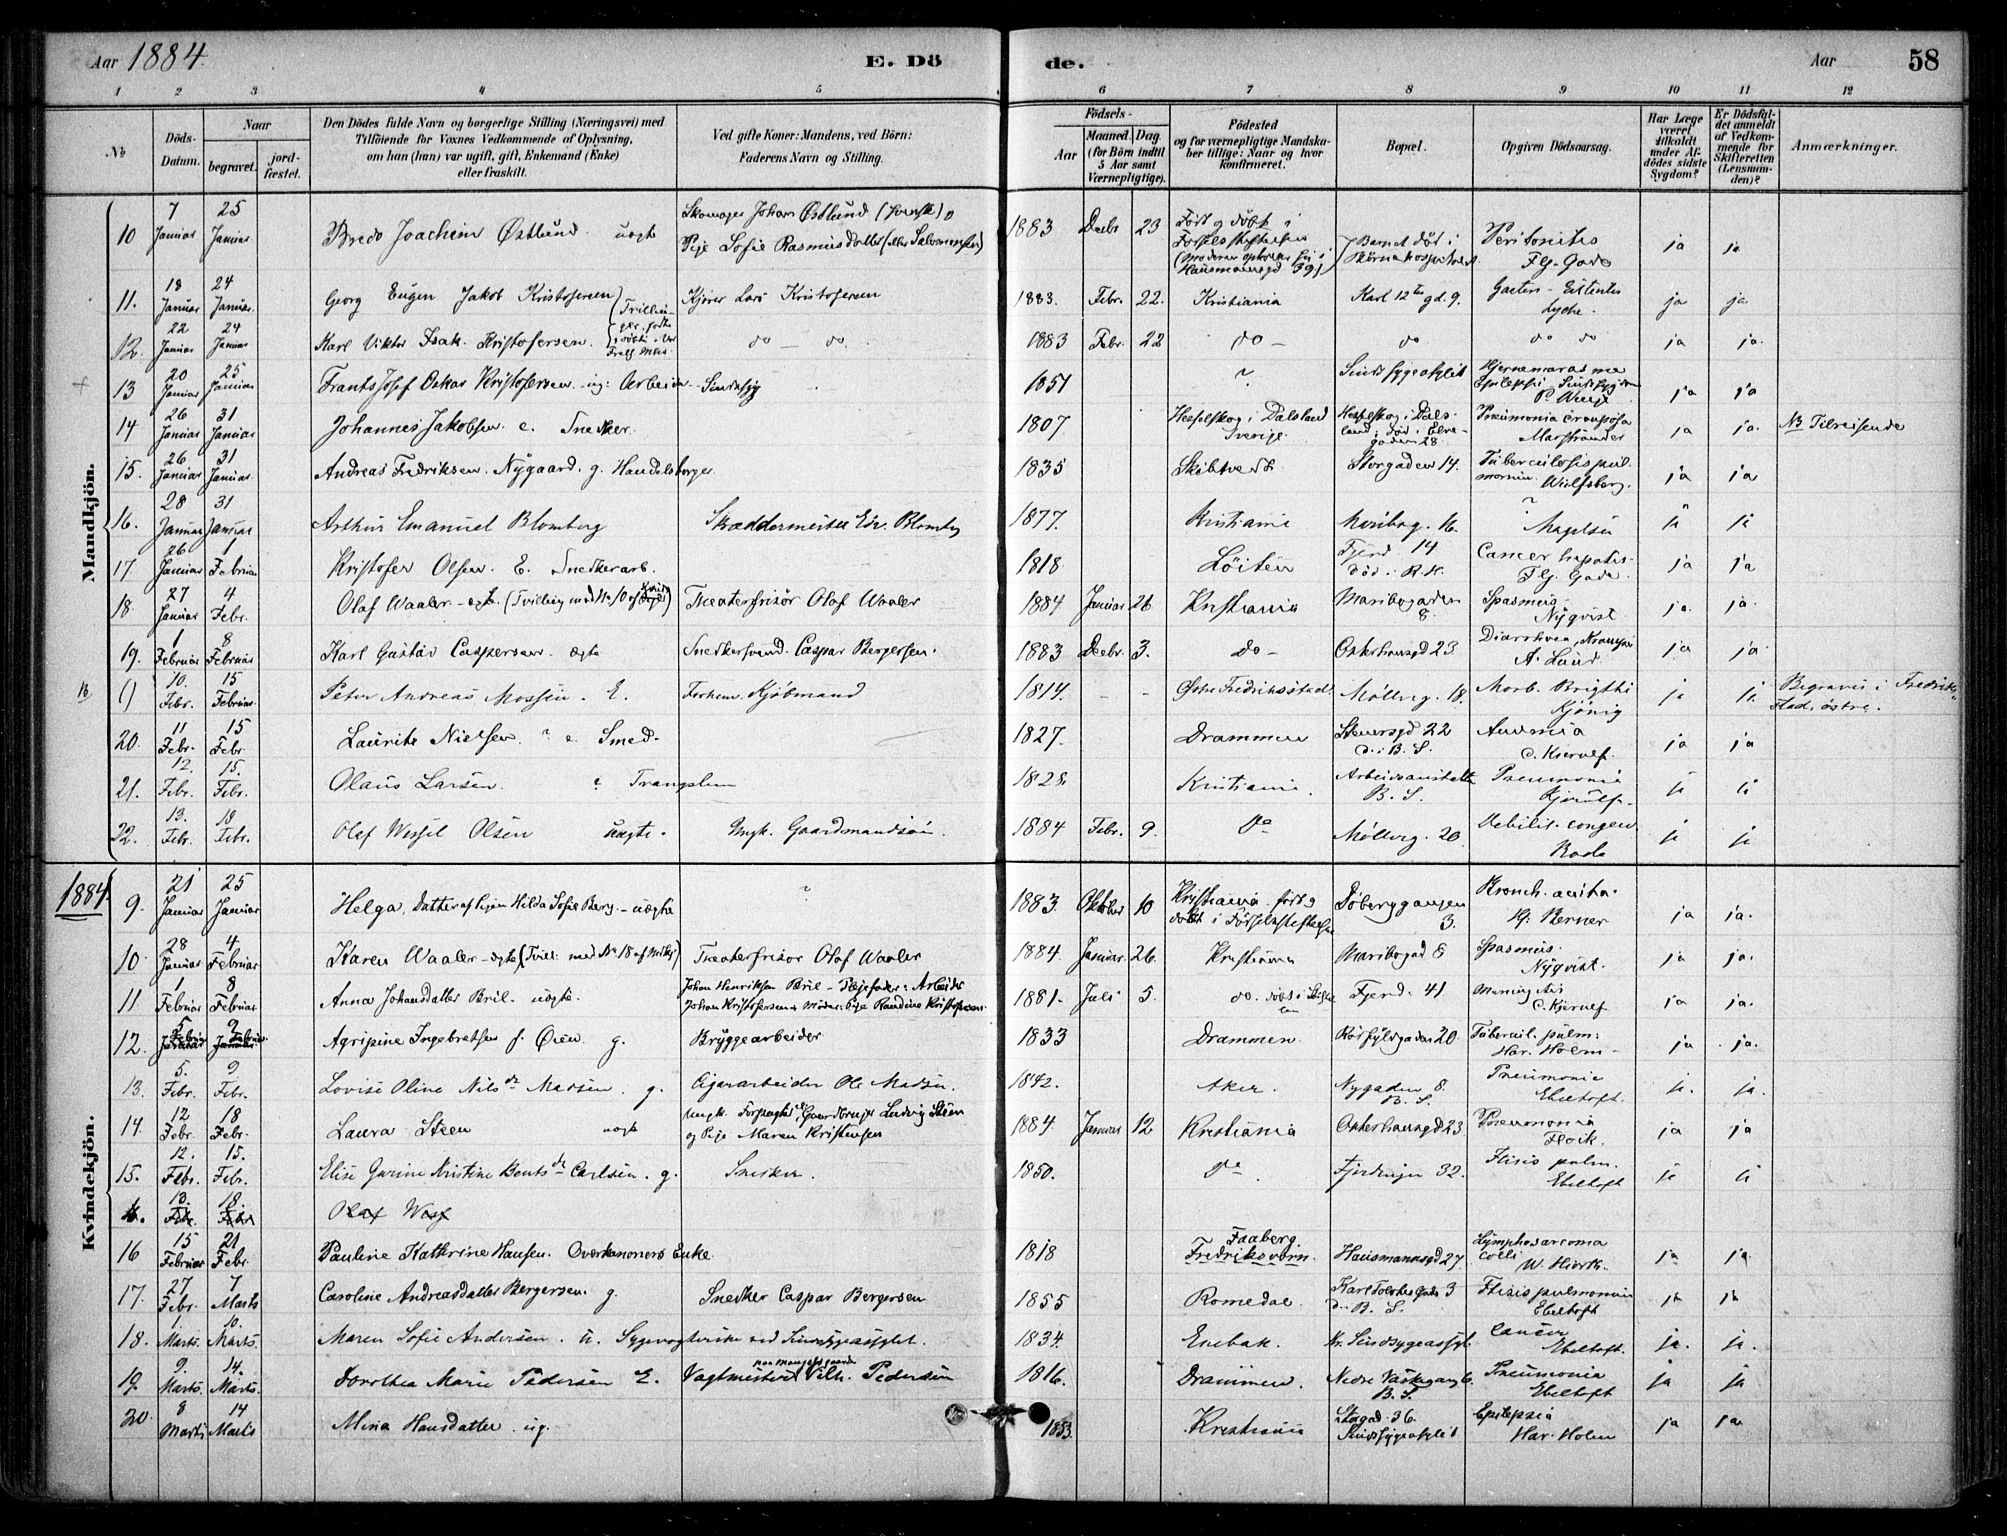 Aar 1884. E. Dö de. Aar 58
1 2 3 4 5 6 7 8 9 10 11 12
No Döds-Datum. Naar begravet. jordfæstet. Den Dödes fulde Navn og borgerlige Stilling (Næringsvei) med Tilföiende for Voxnes Vedkommende af Oplysning, om han (hun) var ugift, gift, Enkemand (Enke) eller fraskilt. Ved gifte Koner: Mandens, ved Börn: Faderens Navn og Stilling. Födsels- Aar Maaned. Dag. (for Börn indtil 5 Aar samt Værnepligtige). Födested og for værnepligtige Mandskaber tillige: Naar og hvor konfirmeret. Bopæl. Opgiven Dödsaarsag. Har Læge været tilkaldt under Afdödes sidste Sygdom? Er Dödsfaldet anmeldt af Vedkommende for Skifteretten (Lensmanden)? Anmærkninger.
Mandkjön.
10 7 Januar 25 Januar Bredo Joachim Østlund uægte Skomager Johan Østlund (svensk) o Pige Sofie Rasmusdatter (eller Salomonsen) 1883 Decbr 23 Født og døbt i Fødselsstiftelsen Hausmannsgd 39 Barnet død i Peritonitis Flg. Gade ja ja
11. 18 Januar 24 Januar. Georg Eugen Jakob Kristofersen Kjører Lars Kristofersen 1883. Febr. 22. Kristiania Karl 12tes gd. 9. ja ja
12. 22 Januar 24 Januar Karl Viktor Isak Kristofersen do — do 1883 Febr. 22 do — do do do ja ja.
13 20 Januar 25 Januar Frants Josef Oskar Kristofersen ug: Arbeider Sindssyg 1851 ? Sindssygeasylet ja ja
14 26 Januar 31 Januar Johannes Jakobsen e. Snedker. 1807 i Dalsland Sverige Pneumonia crouposa Marstrander ja ja. NB Tilreisende
15. 26 Januar 31 Januar. Andreas Fredriksen Nygaard. g. Handelsborger 1835 Skibtvedt Storgaden 14. Tuberculosis pulmonum Wulfsberg. ja ja
16. 28 Januar 31 Januar Arthur Emanuel Blomberg Skreddermester Edv. Blomberg 1877. Kristiania Maribog. 16. ? Magelsen ja ja
17 26 Januar 1 Februar Kristofer Olsen. E. Snedkerarb. 1818 Løiten Fjerd. 14 Død i R.H. Cancer hepatis Flg. Gade. ja ja
18. 27 Januar 4 Febr. Olaf Waaler ægte (Tvilling med No 10 af Kvindekj) Theaterfrisør Olaf Waaler 1884 Januar 26 Kristiania Maribogaden 8. Spasmus Nyqvist. ja. ja.
19. 1 Februar 8 Februar Karl Gustav Caspersen ægte Snedkersvend Caspar Bergersen. 1883 Decbr. 3. do — Osterhausgd 23. Diarrhoea, Krampe A. Lund ja ja
10. Febr. 15 Februar Peter Andreas Mossin. E. Forhen. Kjøbmand 1814. - - Østre Fredriksstad Møllerg. 18. Morb. Brigthi Kjønig ja ja. Begraves i Fredriksstad, østre.
20. 11 Febr. 15 Febr. Laurits Nielsen ? e Smed. 1827. Drammen Stenersgd 22 d. i B.S. Anæmia C. Kjerulf. ja ja
21. 12. Febr. 15. Febr. Olaus Larsen. 1828. Kristiania. Arbeidsanstalten B.S. Pneumonia Kjerulf. ja ja
22. 13. Febr. 18 Febr. Olaf Wessel Olsen uægte. Ungk. Gaardmandsøn. 1884 Febr. 9. do Møllerg. 20. Debilit. congen. Rode ja ja
1884. Kvindekjön.
9. 21 Januar 25 Januar Helga, Datter af Pigen Hilda Sofie Berg. — uægte ? 1883. Oktober 10 Kristiania født og døbt i Fødselsstiftelsen Døbergsgangen 3. Bronch. acuta. Kj. Berner ja ja.
10. 28 Januar 4 Februar Karen Waaler — ægte (Tvill: med No 18 af Mdkj) Theaterfrisør Olaf Waaler 1884. Januar. 26. Kristiania Maribogad 8 Spasmus Nyqvist. ja ja.
11 1 Februar 8 Februar Anna Johansdatter Bril. uægte. Johan Henriksen Bril — Pleiefader: Arbeider Johan Kristofersen Moder: Pige Randine Kristofersen. 1881. Juli 5. do. døbt i Stiftelsen Fjerd. 41. Meningitis C. Kjerulf ja ja.
12. 5 Februar 9 Februar Agripine Ingebretsen f. Øien g. Bryggearbeider 1833 Drammen. Rørfyldgaden 20. Tubercul. pulm: Har. Holm — ja ja.
13. 5. Febr. 9 Febr. Lovise Oline Nilsdr Madsen g. Cigararbeider Ole Madsen. 1842. Aker. Nygaden 8. B.S. Pneumonia Ebeltoft. ja. ja.
14. 12 Febr. 18 Febr. Laura Steen uægte Ungk. Forpagter, Gaardbruger Ludvig Steen og Pige Maren Kristensen 1884. Januar 12 Kristiania Osterhausgd 23 Pneumonia ja ja
15. 12. Febr. 15. Febr. Elise Gurine Kristine Bentsdr Carlsen. g. Snedker. 1850. do Fjerdingen 32. Ftisis pulm. Ebeltoft ja ja
13. Febr. 18. Febr Olaf Wess
16 15 Februar 21 Febr. Pauline Kathrine Hansen. Overkanoners Enke 1818 Faaberg. Fredriksværn. Hausmannsgd 27. Lymphosarcoma colli W. Hiorth. ja ja
17. 27 Febr. 7 Marts Caroline Andreasdatter Bergersen. g. Snedker Caspar Bergersen 1855 Romedal. 3 d. i B.S. Ftisis pulmonum Ebeltoft ja ja
18. 1. Marts. 10. Marts. Maren Sofie Andersen. u. Sygevogterske ved Sindssygeasylet. 1834. Enebak. Kr. Sindssygeasyl. Cancer Ebeltoft. ja. ja.
19. 9. Marts. 14. Marts. Dorothea Marie Pedersen E. Vagtmester Vilh. Pedersen 1816. Drammen. B.S. Pneumonia Ebeltoft ja ja
20. 8 Marts 14 Marts Mina Hansdatter. ug. 1853. Kristiania Storgad. 36. Sindssygeasylet Epilepsia Har. Holm ja ja.